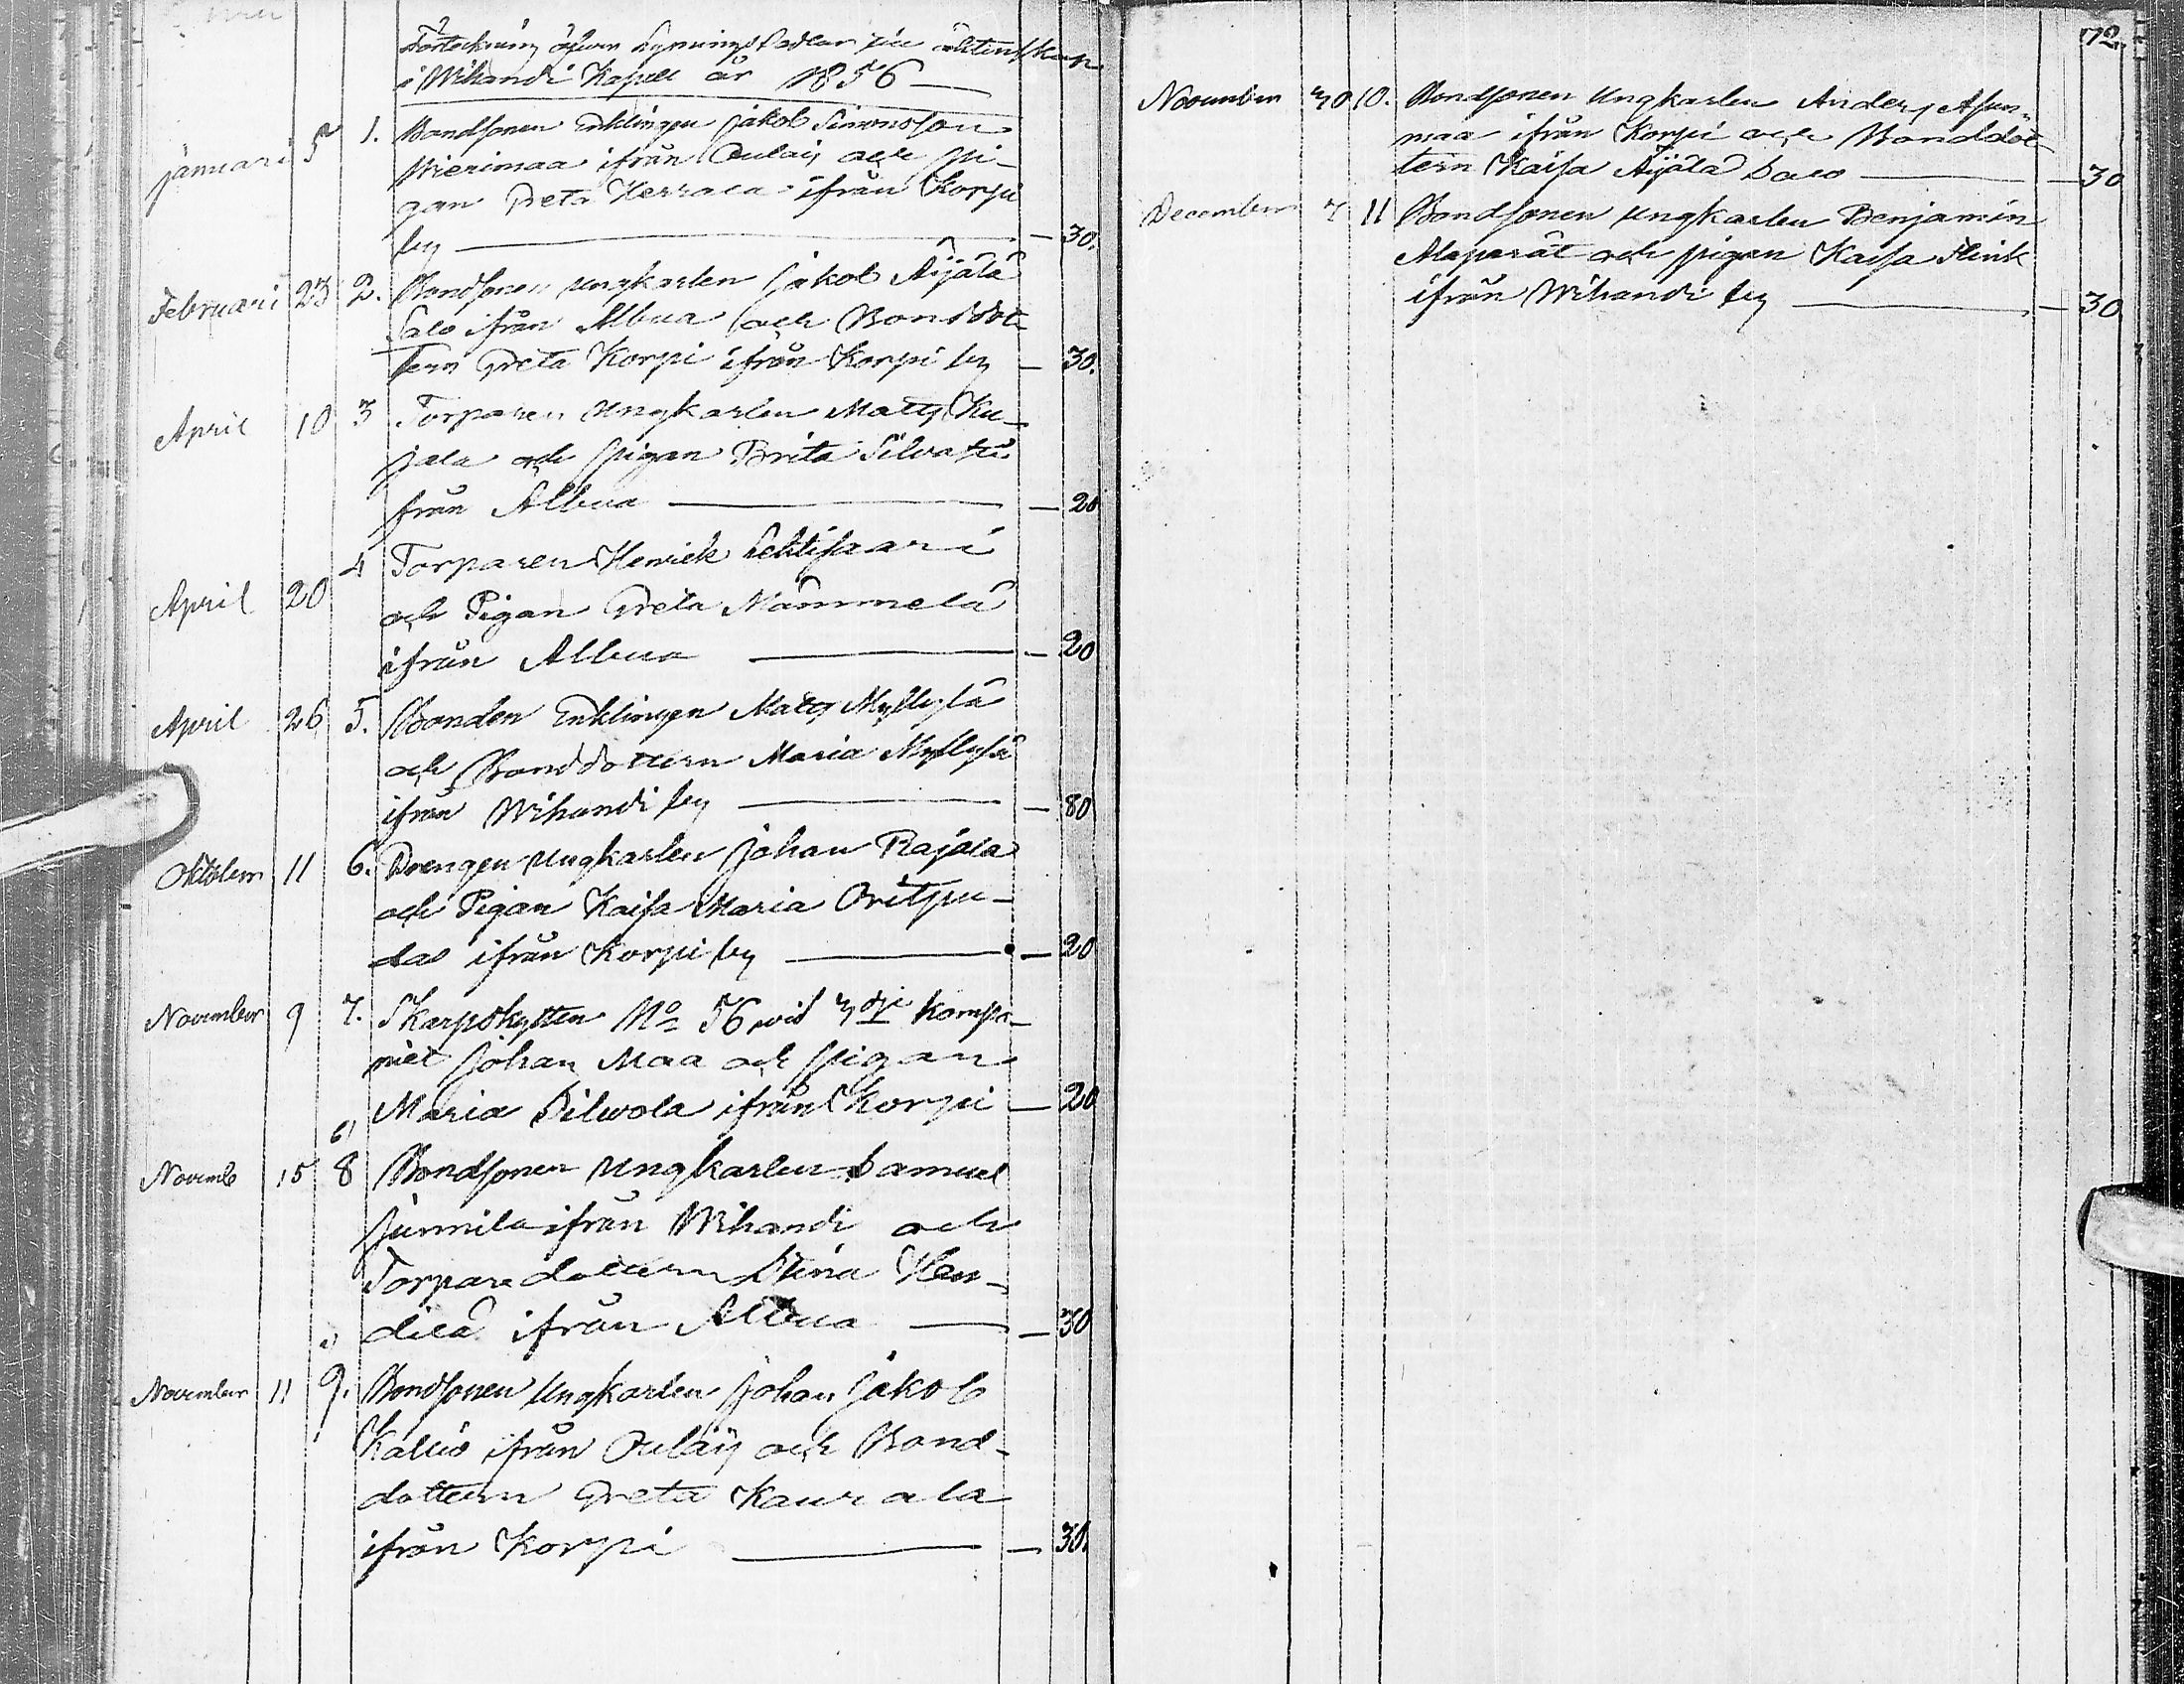 Förteckning öfwer Lysnings Sedlar till äktenskap
i Wihandi Kapell år 1856
Januari 5 1. Bondsonen Enklingen Jakob Simonsson
Wierimaa ifrån Oulais och Pi-
gan Greta Herrala ifrån Korpi
by — 30.
Februari 23 2. Bondsonen Ungkarlen Jakob Äijälä
Salo ifrån Albua och Bonddot-
tern Greta Korpi ifrån Korpi by — 30.
April 10 3 Torparen Ungkarlen Matts Ku-
jala och pigan Brita
från Albua — 20
April 20 4 Torparen Henrik Lehtisaari
och Pigan Greta Mämmelä
ifrån Albua — 20
April 26 5. Bonden Enklingen Matts Myllylä
och Bonddottern Maria Myllylä
ifrån Wihandi by — 80
Oktober 11 6. Drengen Ungkarlen Johan Rajala
och Pigan Kaisa Maria Oritpu-
das ifrån Korpi by — 20
November 9 7. Skarpskytten No 56 wid 3dje Kompa-
niet Johan Maa och pigan
Maria Pilwola ifrån Korpi — 20
Novemb 15 8 Bondsonen Ungkarlen Samuel
Jumila ifrån Wihandi och
Torparedottern Stina
ifrån Albua — 30
November 11 9. Bondsonen Ungkarlen Johan Jakob
Kallio ifrån Oulais och Bond-
dottern Greta Kaurala
ifrån Korpi — 30.
72.
November 30 10. Bondsonen Ungkarlen Anders Asun-
maa ifrån Korpi och Bonddot-
tern Kaisa Äijälä Salo — 30
December 7 11 Bondsonen Ungkarlen Benjamin
och pigan Kaisa Flink
ifrån Wihandi by — 30